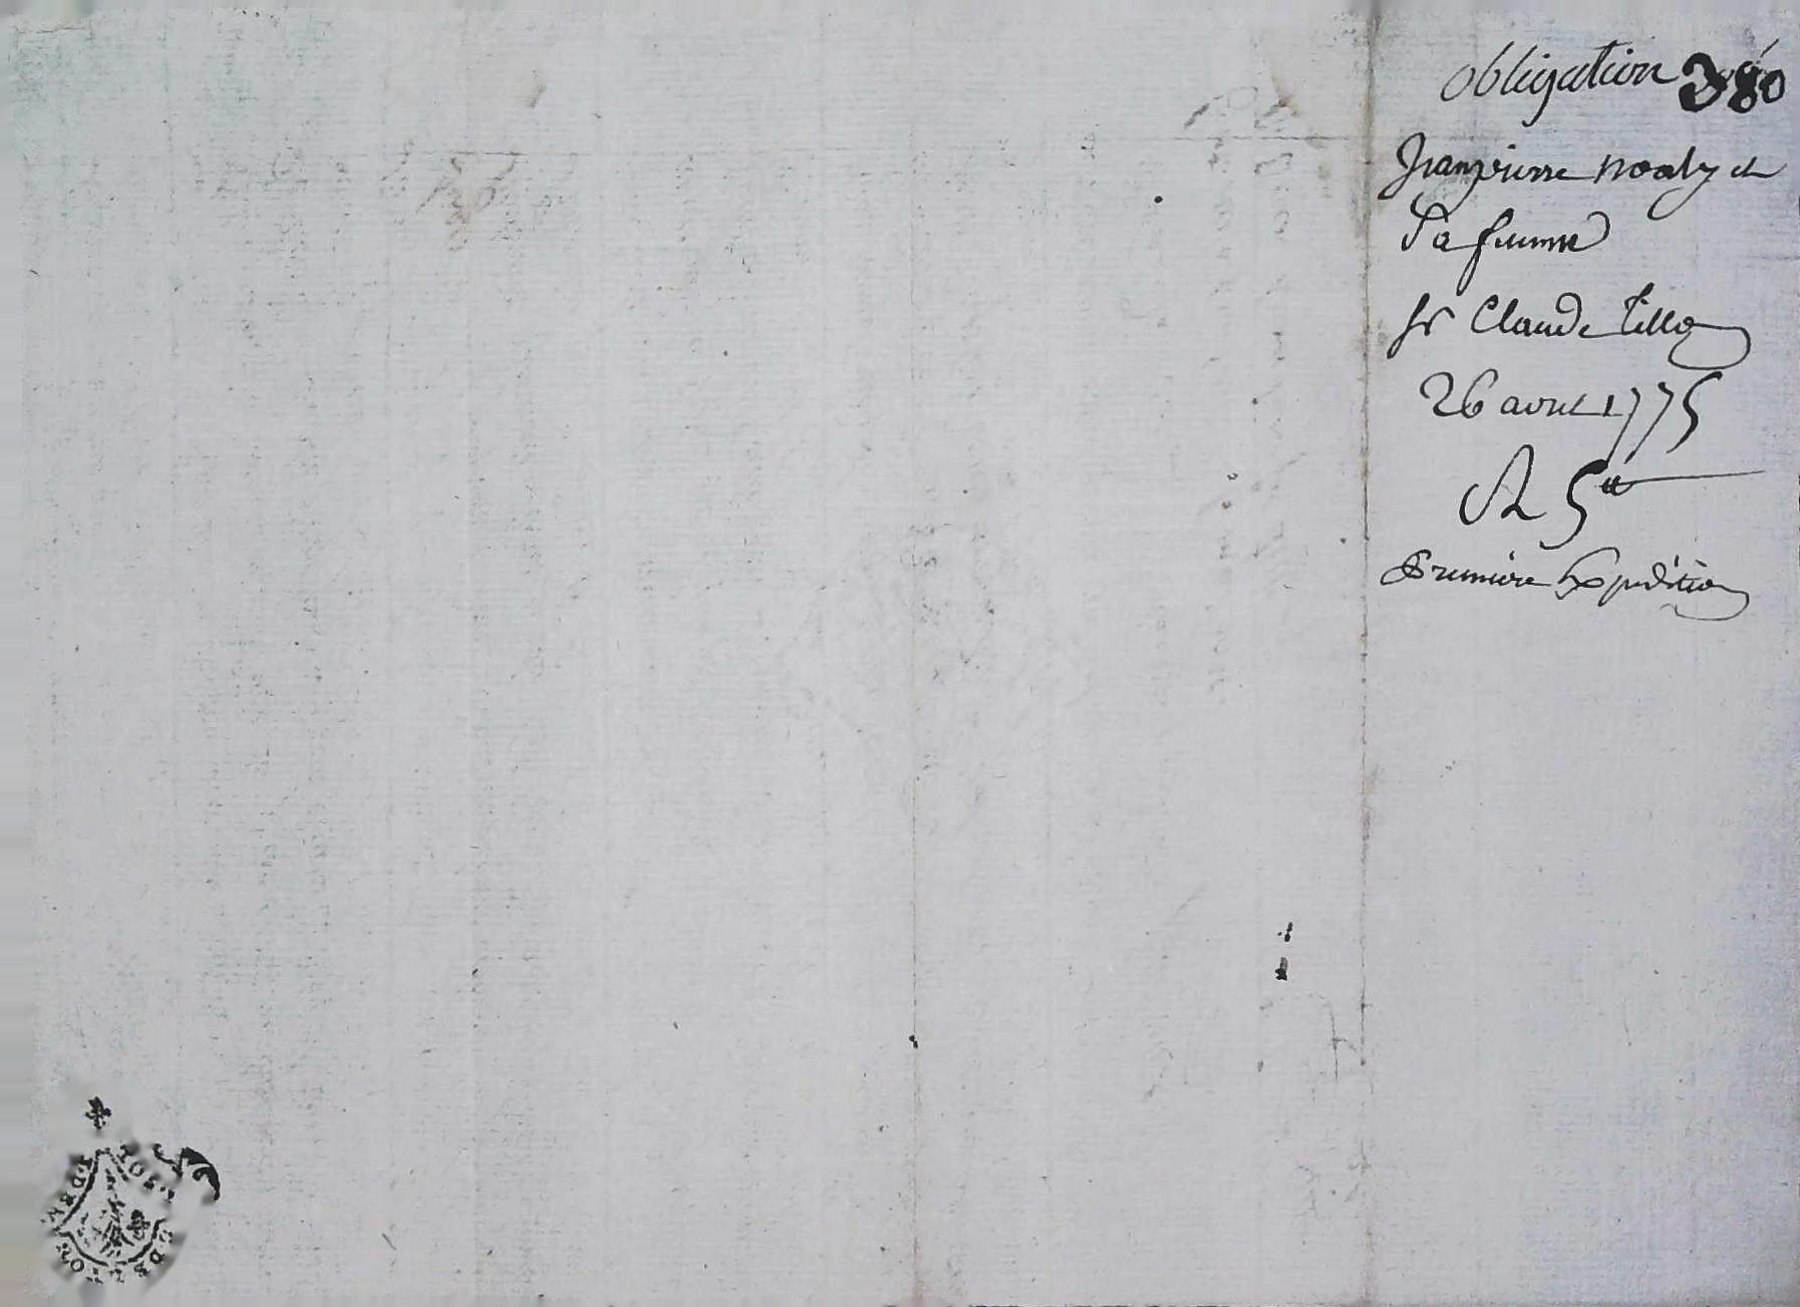 obligation 380
Jeanpierre noaly et
Sa femme
Sr Claude tillo
26 avril 1775
R 5tt
Premiere Expedition